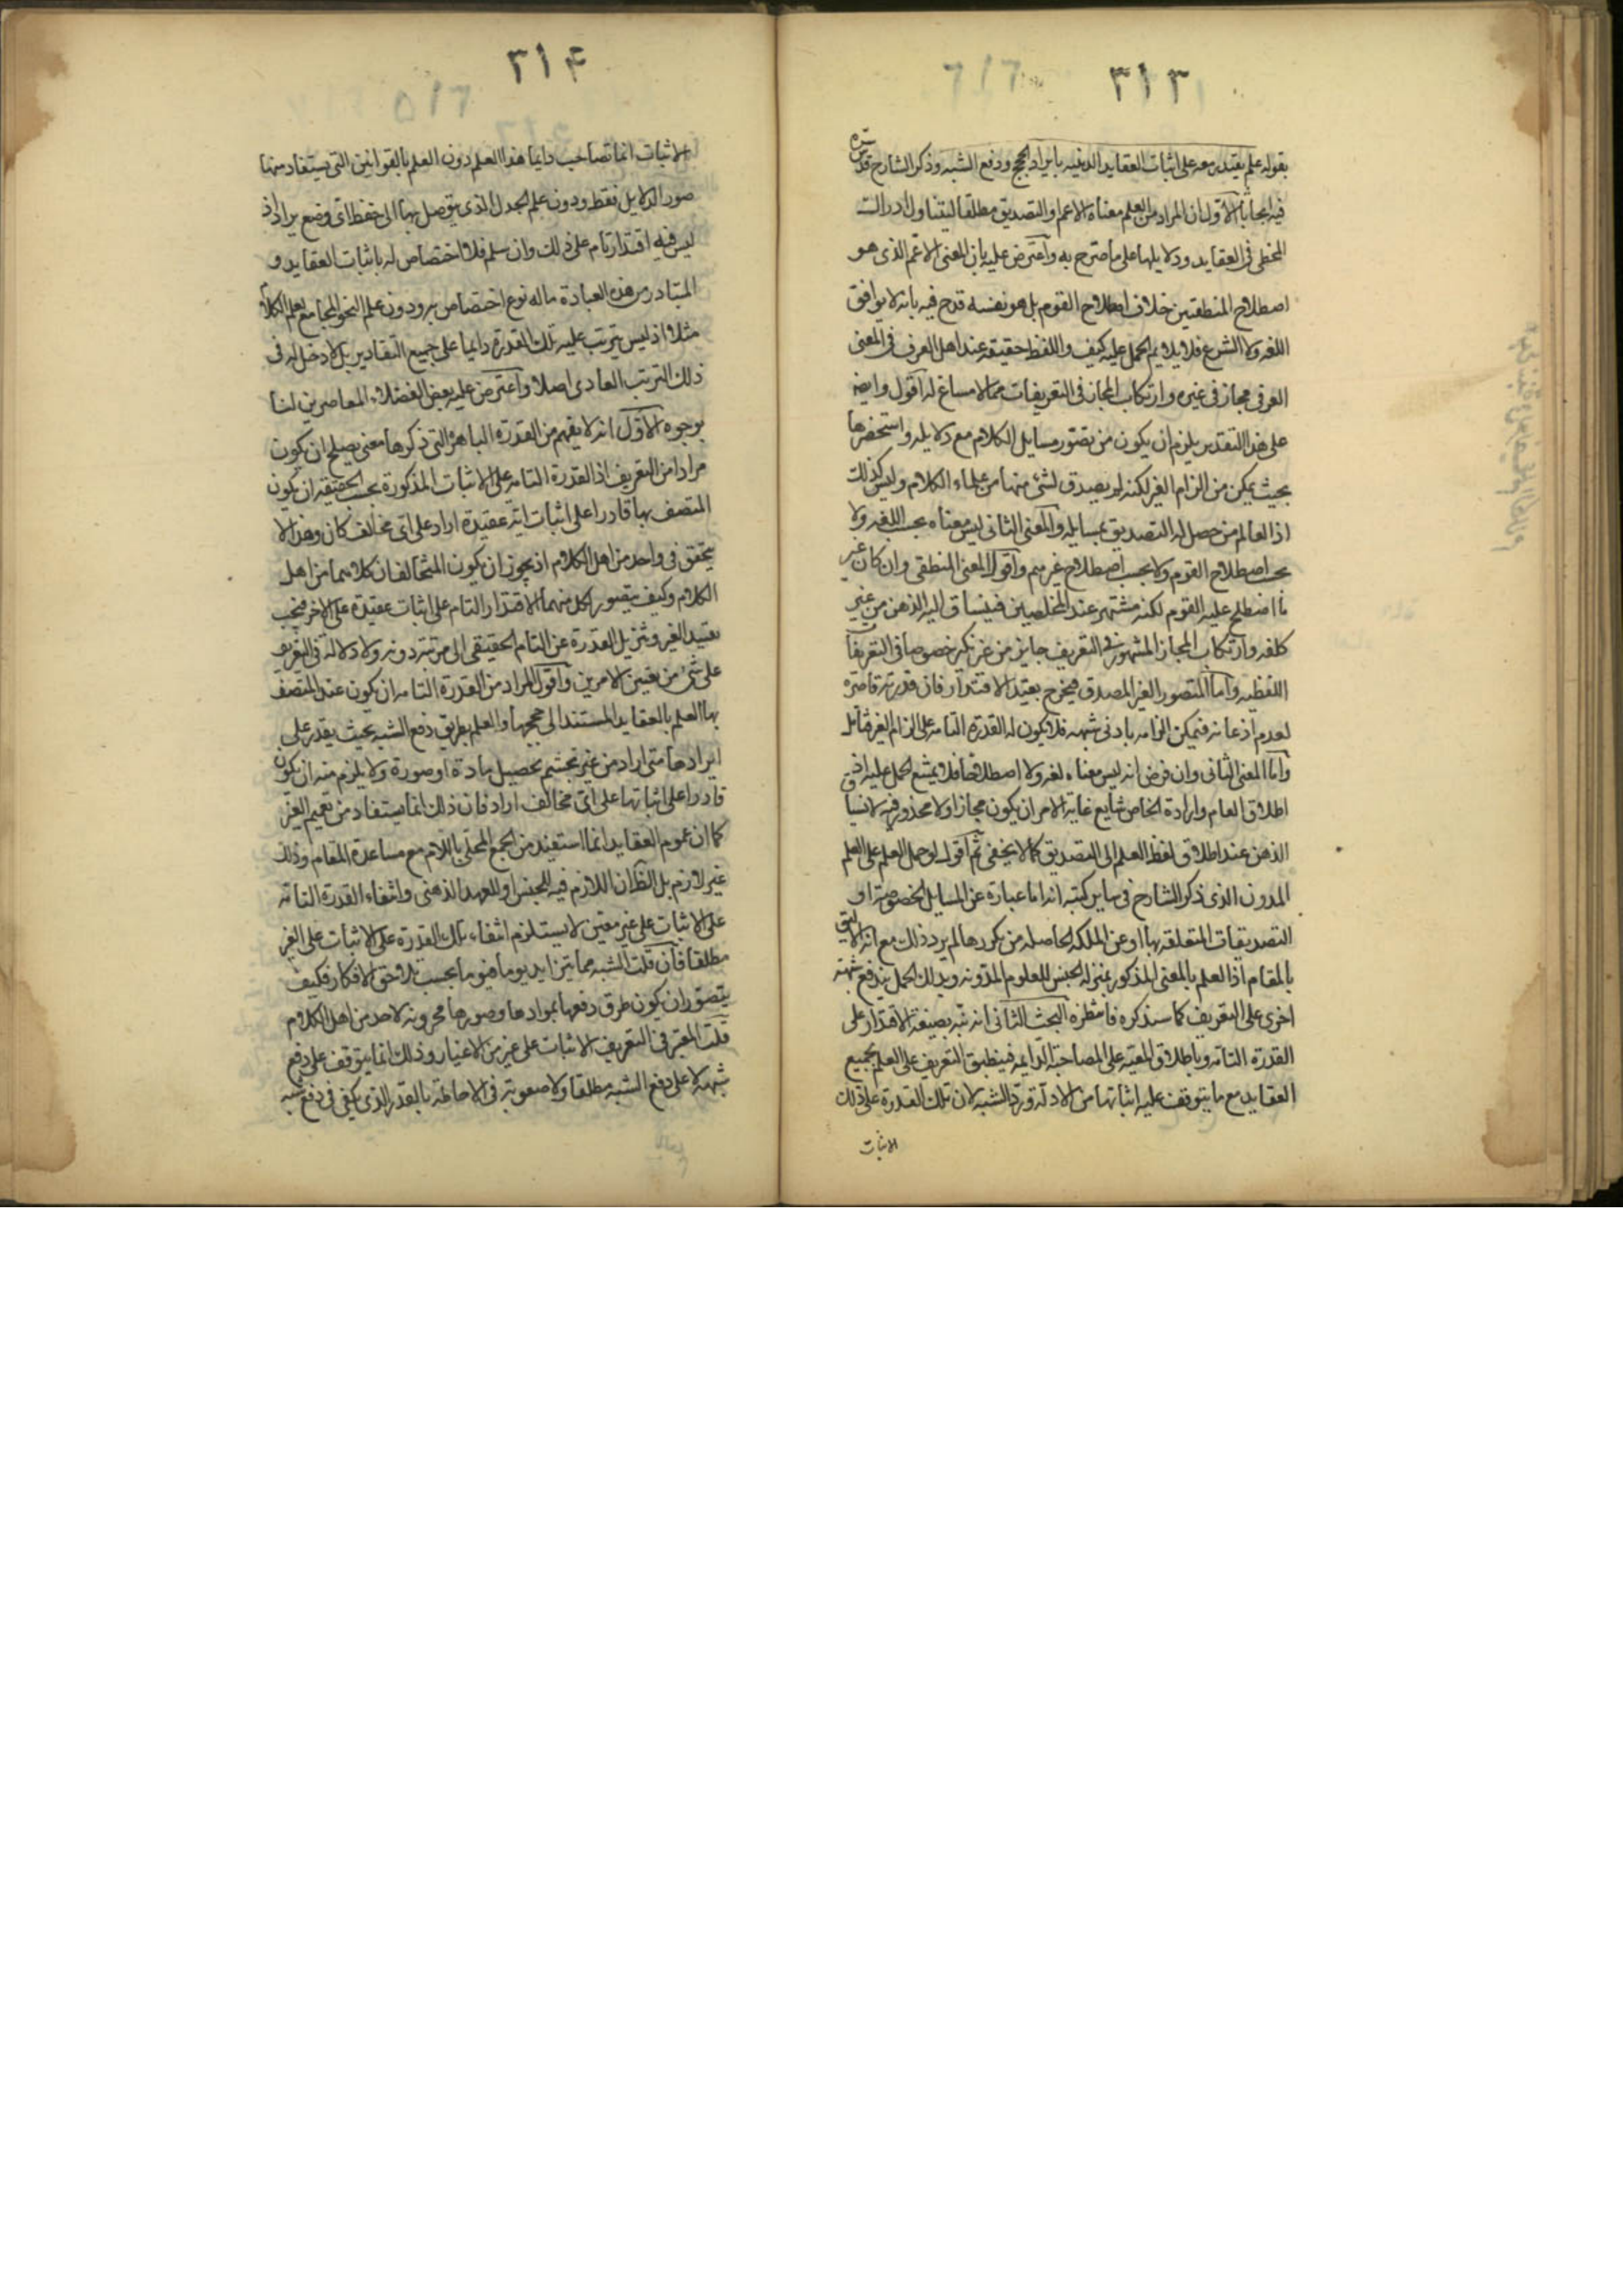 ٣١٣
بقوله علم يقتدر معه على اثبات العقايد الدينيه بايراد الحجج ودفع الشبه وذكر الشارح قدس سره
فيه ابحاثا الاول ان المراد من العلم معناه الاعم او التصديق مطلقا ليتناول ادراك
المخطى فى العقايد ودلايلها على ما صرح به واعترض عليه بان المعنى الاعم الذى هو
اصطلاح المنطقيين خلاف اصطلاح القوم بل هو نفسه قدح فيه بانه لا يوافق
اللغه ولا الشرع فلا يلايم الحمل عليه كيف واللفظ حقيقه عند اهل العرف فى المعنى
العرفى مجاز فى غيره وارتكاب المجاز فى التعريفات مما لا مساغ له اقول وايضا
على هذا التقدير يلزم ان يكون من تصور مسايل الكلام مع دلايله واستحضرها
بحيث يمكن من الزام الغير لكنه لم يصدق لشئ منها من علماء الكلام وليس كذلك
اذ العالم من حصل له التصديق بمسايله والمعنى الثانى ليس معناه بحسب اللغه ولا
بحسب اصطلاح القوم ولا بحسب اصطلاح غيرهم واقول المعنى المنطقى وان كان غير
ما اصطلح عليه القوم لكنه مشتهر عند المحصلين فينساق اليه الذهن من غير
كلفه وارتكاب المجاز المشهور فى التعريف جايز من غير نكير خصوصا فى التعريفات
اللفظيه واما المتصور الغير المصدق فيخرج بقيد الاقتدار فان قدرته قاصرة
لعدم اذعانه فيمكن الزامه بادنى شبهه فلا يكون له القدرة التامه على الزام الغير فتامل
واما المعنى الثانى وان فرض انه ليس معناه لغه ولا اصطلاحا فلا يمتنع الحمل عليه اذ
اطلاق العام وارادة الخاص شايع غاية الامر ان يكون مجازا ولا محذور فيه لانسياق
الذهن عند اطلاق لفظ العلم الى التصديق كما لا يخفى ثم اقول لو حمل العلم على العلم
المدون الذى ذكر الشارح فى ساير كتبه انه اما عبارة عن المسايل المخصوصة او
التصديقات المتعلقه بها او عن الملكه الحاصله من تكررها لم يرد ذلك مع انه الاليق
بالمقام اذ العلم بالمعنى المذكور بمنزله الجنس للعلوم المدونه وبذلك الحمل يندفع شبهة
اخرى على التعريف كما سنذكره فانتظره البحث الثانى انه نبه بصيغة الاقتدار على
القدرة التامه وباطلاق المعيه على المصاحبة الدايمه فينطبق التعريف على العلم بجميع
العقايد مع ما يتوقف عليه اثباتها من الادلة ورد الشبه لان تلك القدرة على ذلك
الاثبات
٣١٤
الاثبات انما تصاحب دايما هذا العلم دون العلم بالقوانين التى يستفاد منها
صور الدلايل فقط ودون علم الجدل الذى يتوصل بها الى حفظ اى وضع يراد اذ
ليس فيه اقتدار تام على ذلك وان سلم فلا اختصاص له باثبات العقايد و
المتبادر من هذه العبارة ما له نوع اختصاص به ودون علم النحو المجامع لعلم الكلام
مثلا اذ ليس يترتب عليه تلك القدرة دايما على جميع التقادير بل لا دخل له فى
ذلك الترتب العادى اصلا واعترض عليه بعض الفضلاء المعاصرين لنا
بوجوه الاول انه لا يفهم من القدرة التامة التى ذكرها معنى يصلح ان يكون
مرادا من التعريف اذ القدرة التامه على الاثبات المذكورة بحسب الحقيقة ان يكون
المتصف بها قادرا على اثبات اية عقيدة اراد على اى مخالف كان وهذا لا
يتحقق فى واحد من اهل الكلام اذ يجوز ان يكون المتخالفان كلاهما من اهل
الكلام وكيف يتصور لكل منهما الاقتدار التام على اثبات عقيدة على الاخر فيجب
تقييد الغير وتنزيل القدرة عن التام الحقيقى الى مرتبة دونه ولا دلالة فى التعريف
على شئ من تعيين الامرين واقول المراد من القدرة التامه ان يكون عند المتصف
بها العلم بالعقايد المستند الى حججها والعلم بطريق دفع الشبه بحيث يقدر على
ايرادها متى اراد من غير تجشم تحصيل مادة او صورة ولا يلزم منه ان يكون
قادرا على اثباتها على اى مخالف اراد فان ذلك انما يستفاد من تعميم الغير
كما ان عموم العقايد انما استفيد من الجمع المحلى باللام مع مساعدة المقام وذلك
غير لازم بل الظ ان اللازم فيه للجنس او للعهد الذهنى وانتفاء القدرة التامه
على الاثبات على غير معين لا يستلزم انتفاء تلك القدرة على الاثبات على الغير
مطلقا فان قلت الشبه مما تتزايد يوما فيوما بحسب تلاحق الافكار فكيف
يتصور ان يكون طرق دفعها بموادها وصورها مخزونه لاحد من اهل الكلام
قلت المعتبر فى التعريف الاثبات على غير من الاغيار وذلك انما يتوقف على دفع
شبهه لا على دفع الشبه مطلقا ولا صعوبة فى الاحاطة بالقدر الذى يكفى فى دفع شبه